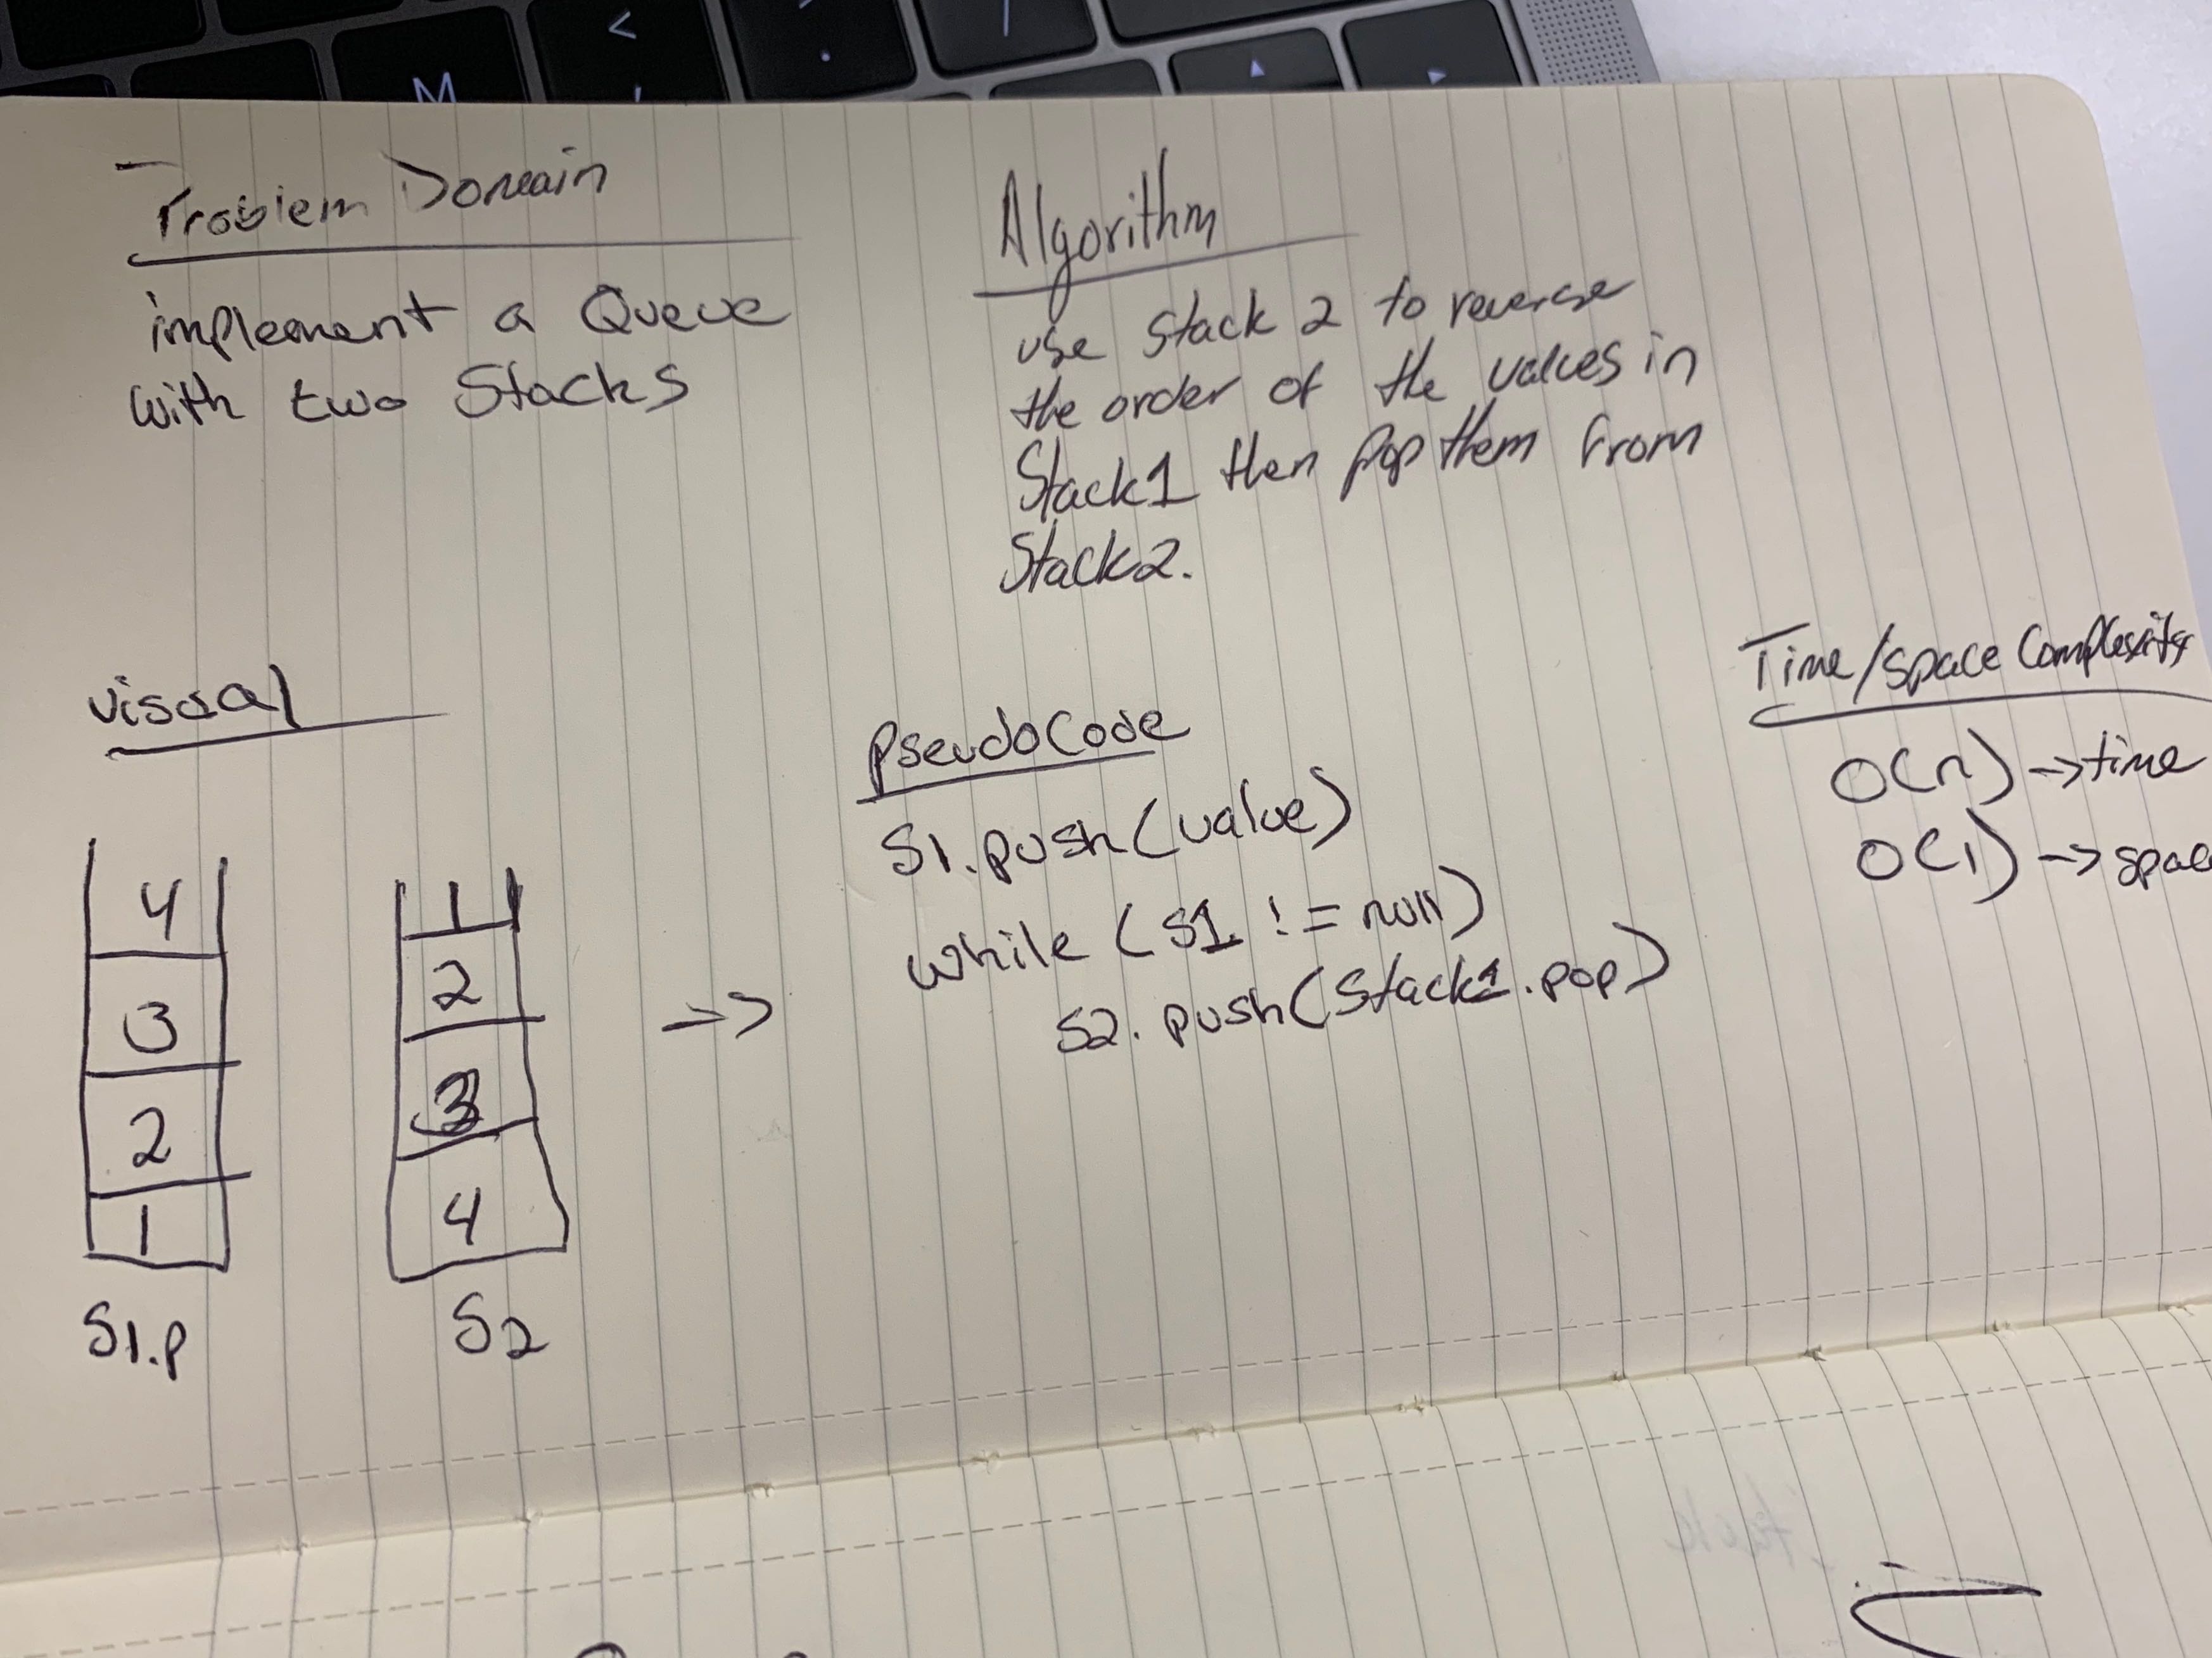 M
<
,
>
.
/
Problem Domain
implement a Queue
with two Stacks
Algorithm
use Stack 2 to reverse
the order of the values in
Stack1 then pop them from
Stack2.
visual
4
3
2
1
S1.p
1
2
3
4
S2
->
pseudoCode
S1.push(value)
while (S1 != null)
S2.push(Stack1.pop)
Time/space Complexity
O(n) -> time
O(1) -> spac